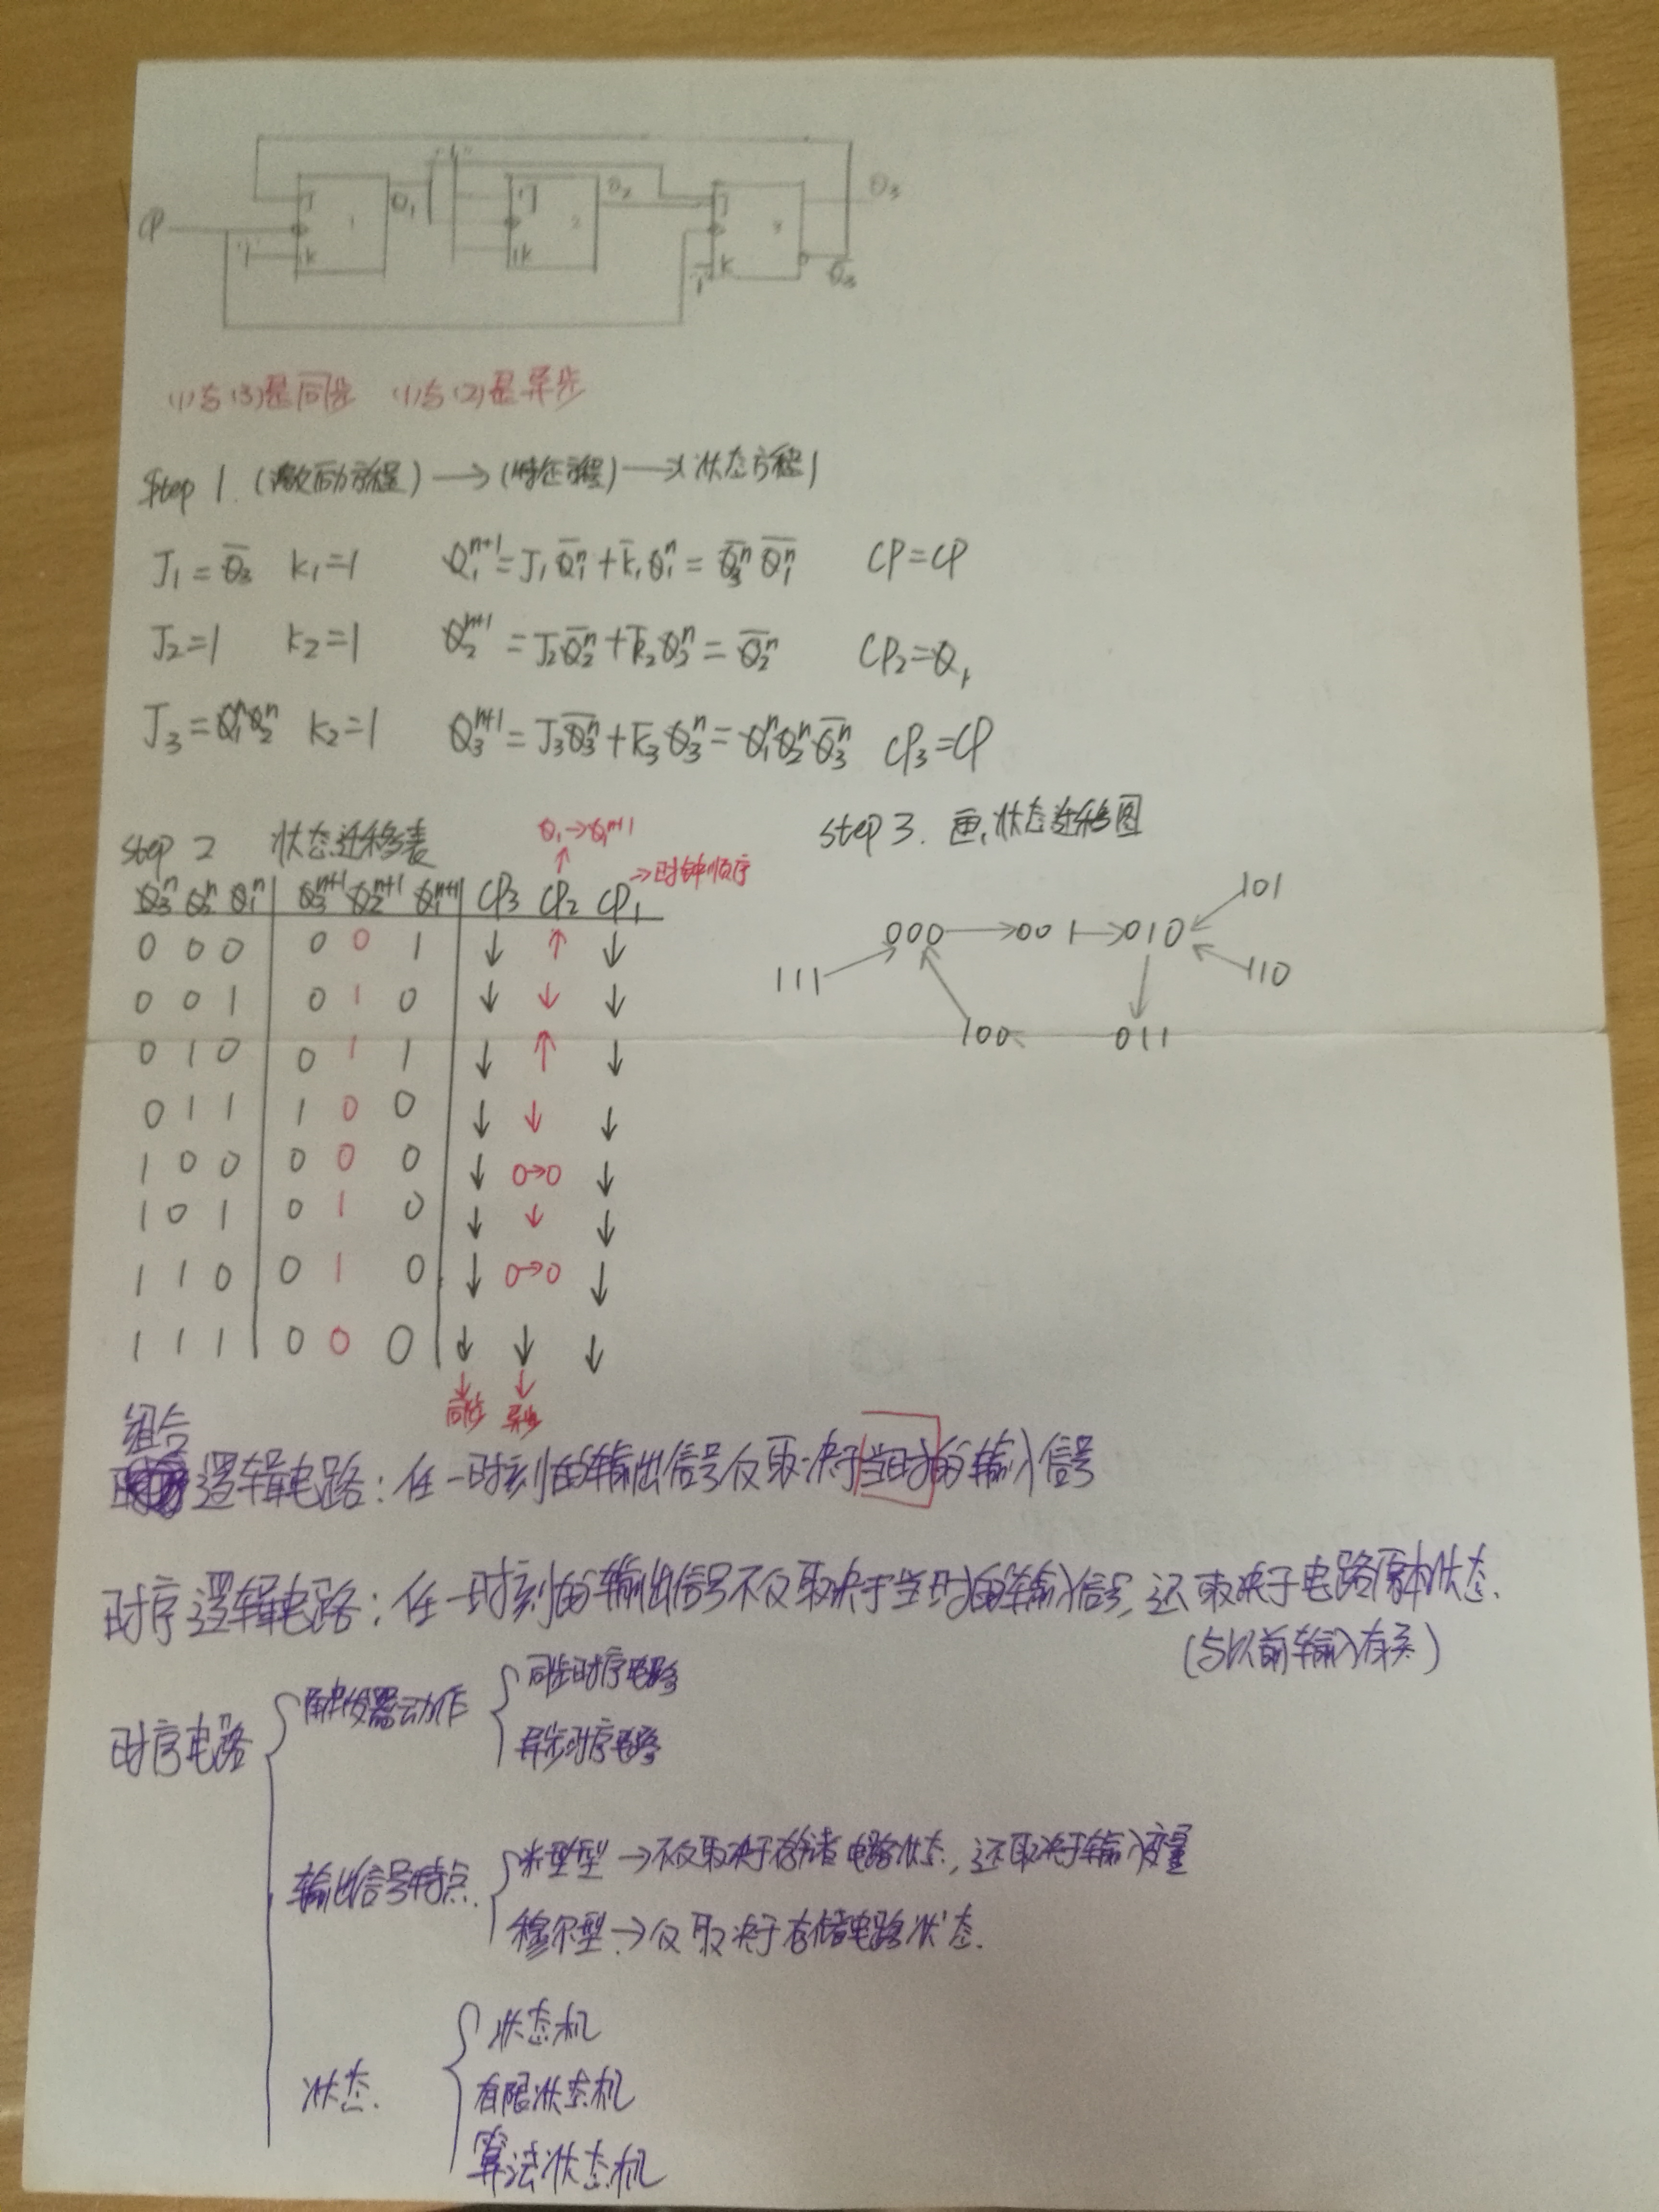 CP "1" J 1 K Q₁ "1" J 2 K Q₂ J 3 K "1" Q₃ Q̄₃
(1)与(3)是同步 (1)与(2)是异步
Step 1. (激励方程)→(特征方程)→(状态方程)
J₁=Q̄₃ K₁=1 Q₁ⁿ⁺¹=J₁Q̄₁ⁿ+K̄₁Q₁ⁿ=Q̄₃ⁿQ̄₁ⁿ CP=CP
J₂=1 K₂=1 Q₂ⁿ⁺¹=J₂Q̄₂ⁿ+K̄₂Q₂ⁿ=Q̄₂ⁿ CP₂=Q₁
J₃=Q₁ⁿQ₂ⁿ K₂=1 Q₃ⁿ⁺¹=J₃Q̄₃ⁿ+K̄₃Q₃ⁿ=Q₁ⁿQ₂ⁿQ̄₃ⁿ CP₃=CP
Step 2 状态迁移表
Q₁→Q₁ⁿ⁺¹
↑
→时钟顺序
Q₃ⁿ Q₂ⁿ Q₁ⁿ Q₃ⁿ⁺¹ Q₂ⁿ⁺¹ Q₁ⁿ⁺¹ CP₃ CP₂ CP₁
0 0 0 0 0 1 ↓ ↑ ↓
0 0 1 0 1 0 ↓ ↓ ↓
0 1 0 0 1 1 ↓ ↑ ↓
0 1 1 1 0 0 ↓ ↓ ↓
1 0 0 0 0 0 ↓ 0→0 ↓
1 0 1 0 1 0 ↓ ↓ ↓
1 1 0 0 1 0 ↓ 0→0 ↓
1 1 1 0 0 0 ↓ ↓ ↓
↓ ↓
同步 异步
Step 3. 画状态迁移图
101
000→001→010
111 110
100 011
组合
逻辑电路:任一时刻的输出信号仅取决于当时的输入信号
时序逻辑电路:任一时刻的输出信号不仅取决于当时的输入信号,还取决于电路原本状态.
(与以前输入有关)
时序电路
触发器动作
同步时序电路
异步时序电路
输出信号特点
米里型→不仅取决于存储电路状态,还取决于输入变量
穆尔型→仅取决于存储电路状态.
状态.
状态机
有限状态机
算法状态机